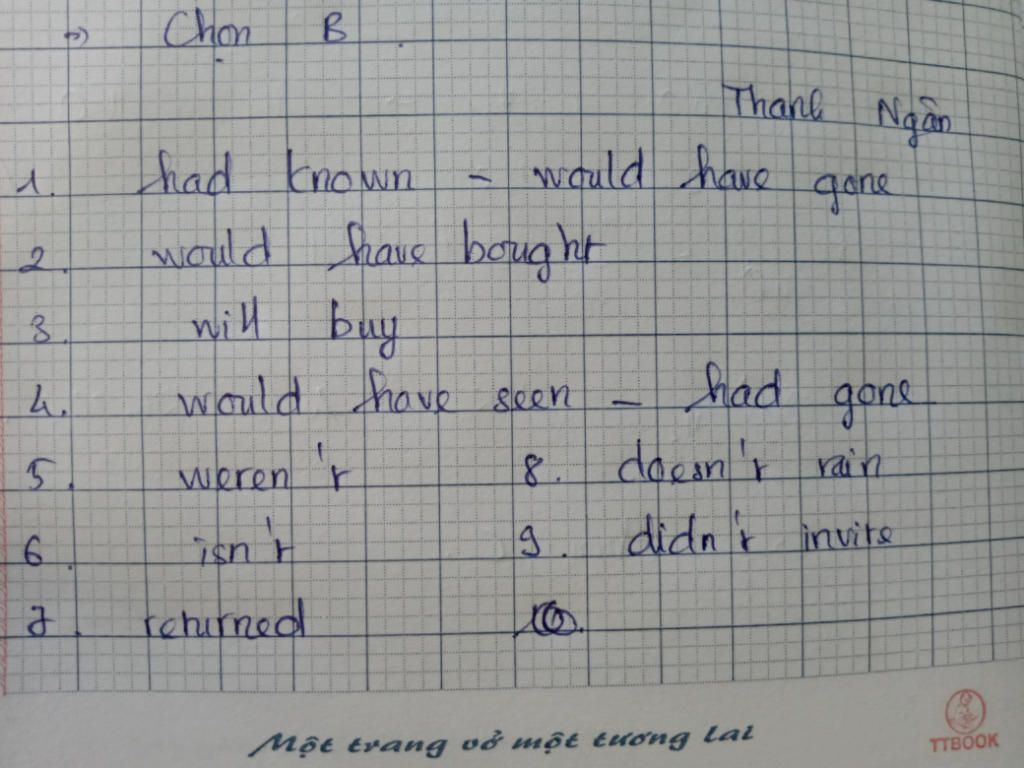 => Chọn B.
Thanh Ngân
1. had known - would have gone
2. would have bought
3. will buy
4. would have seen - had gone
5. weren't 8. doesn't rain
6. isn't 9. didn't invite
7. returned
Một trang vở một tương lai
TTBOOK